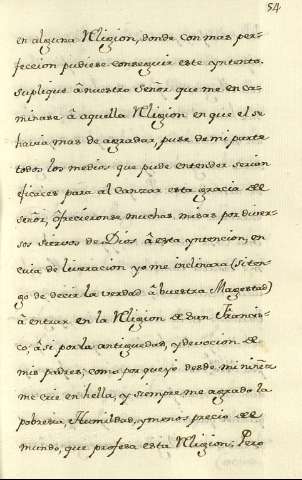 54
en alguna Religion, donde con mas per-
feccion pudiese conseguir este yntento.
suplique â nuestro Señor que me en ca-
minase â aquella Religion en que el se
havia mas de agradar, puse de mi parte
todos los medios que pude entender serian
eficaces para al canzar esta gracia del
señor, ofrecieronse muchas misas por diver-
sos siervos de Dios â esta yntencion, en
cuia deliveracion yo me inclinara (si ten-
go de decir la verdad â buestra Magestad)
â entrar en la Religion de Sn. Francis-
co, âsi por la antiguedad, y devocion de
mis padres, como por que yo desde mi niñez
me crie en hella, y siempre me agrado la
pobreza, Humildad, y menos precio del
mundo, que profesa esta Religion; Pero